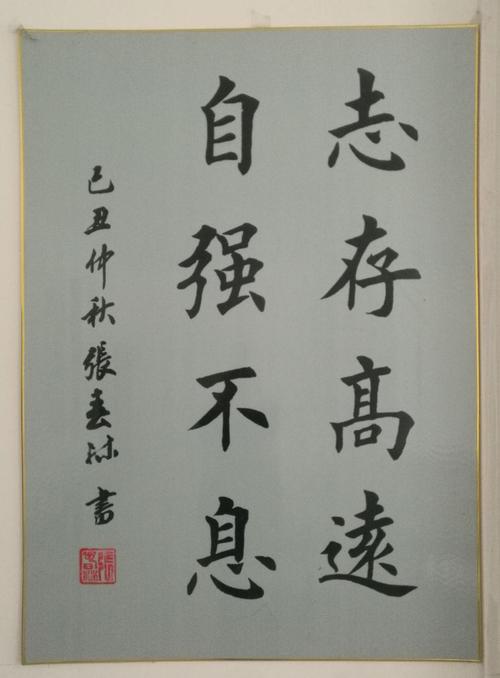 志存髙遠
自强不息
己丑仲秋張春沐書